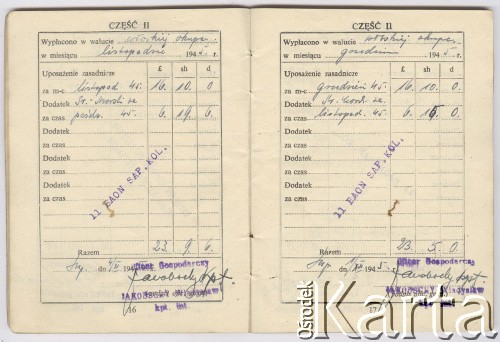 CZĘŚĆ II
Wypłacono w walucie włoskiej okupac.
w miesiącu listopadzie 1945. r.
Uposażenie zasadnicze £ sh d
za m-c listopad 45. 16. 10. 0
Dodatek
za czas paźdz. 45. 6. 19. 6.
Dodatek
za czas
Dodatek
za czas
Dodatek
za czas
11 BAON SAP. KOL.
Razem 23. 9. 6.
dn. 194
Oficer Gospodarczy
JAKOBSCHY
kpt. int.
16
CZĘŚĆ II
Wypłacono w walucie włoskiej okupac.
w miesiącu grudniu 1945. r.
Uposażenie zasadnicze £ sh d
za m-c grudzień 45. 16. 10. 0
Dodatek
za czas listopad. 45. 6. 15 0.
Dodatek
za czas
Dodatek
za czas
Dodatek
za czas
11 BAON SAP. KOL.
Razem 23. 5. 0.
dn. 1945.
Oficer Gospodarczy
JAKOBSCHY Władysław
17
ośrodek
Karta